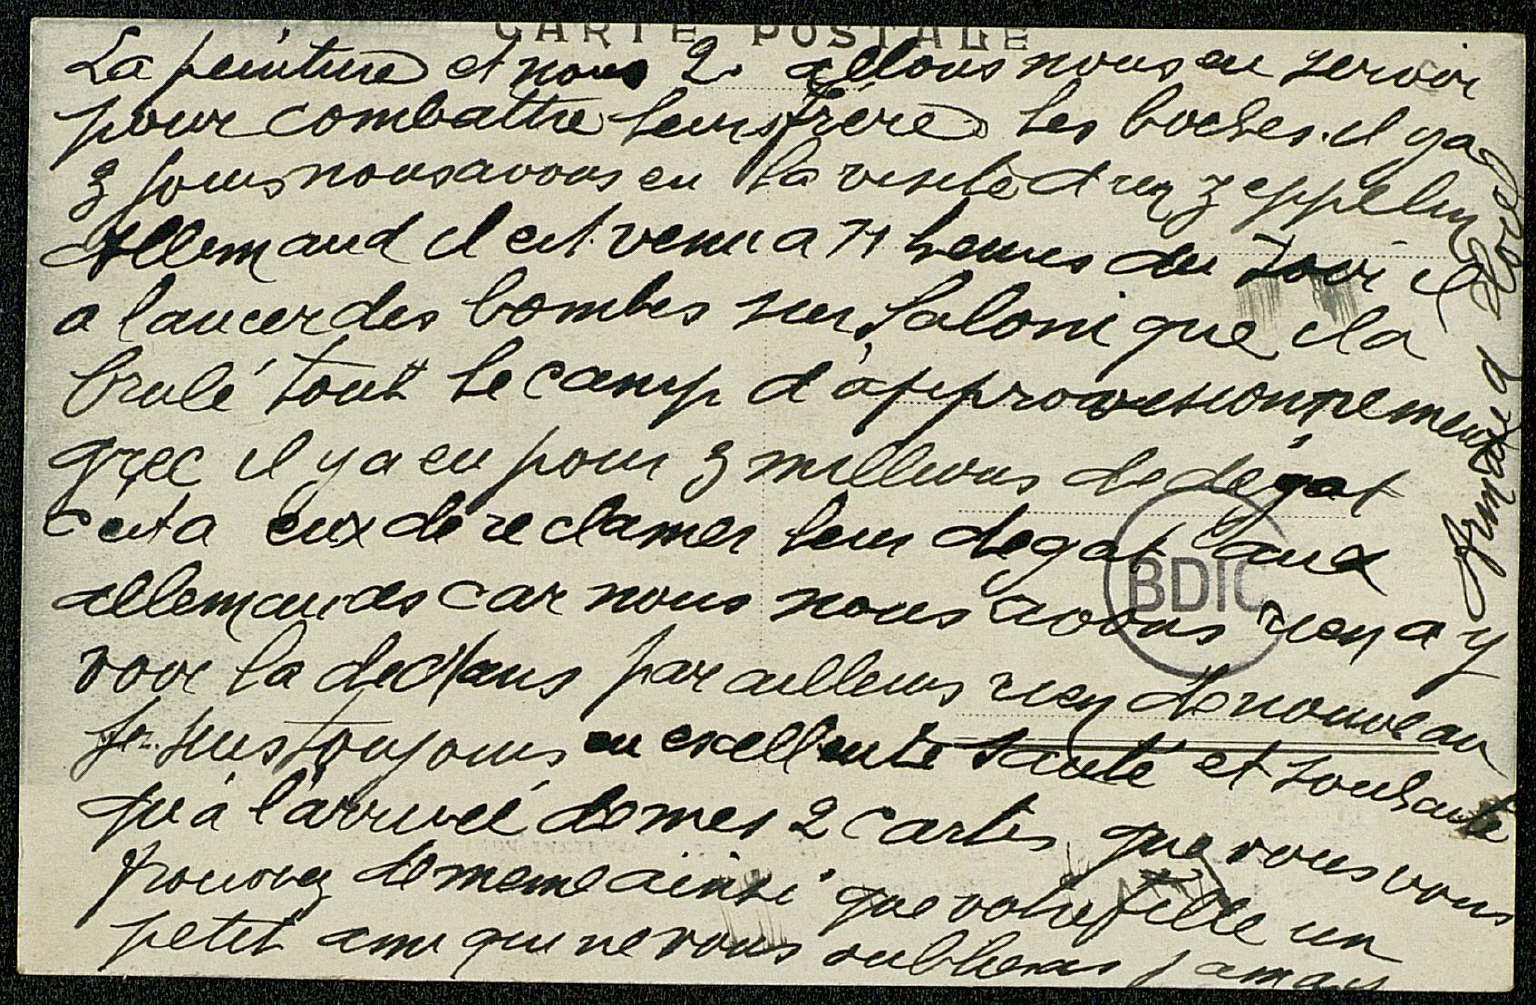 CARTE POSTALE
La peinture et nous 2. allons nous en servoir
pour combattre leurs frère les boches. il y a
3 jours nous avons eu la visite d'un zeppelin
Allemand il est venu a 11 heures du soir il
a lancer des bombes sur Salonique il a
brulé tout le camp d'approvisionnement
grec il y a eu pour 3 millions de dégat
c'est a eux de reclamer leur degat aux
allemands car nous nous avons rien a y
voir la dedans par ailleurs rien de nouveau
je suis toujours en excellente santé et souhaite
qu'a l'arrivé de mes 2 cartes que vous vous
trouvez de meme ainsi que votre fille un
petit ami qui ne vous oubliera jamais
BDIC